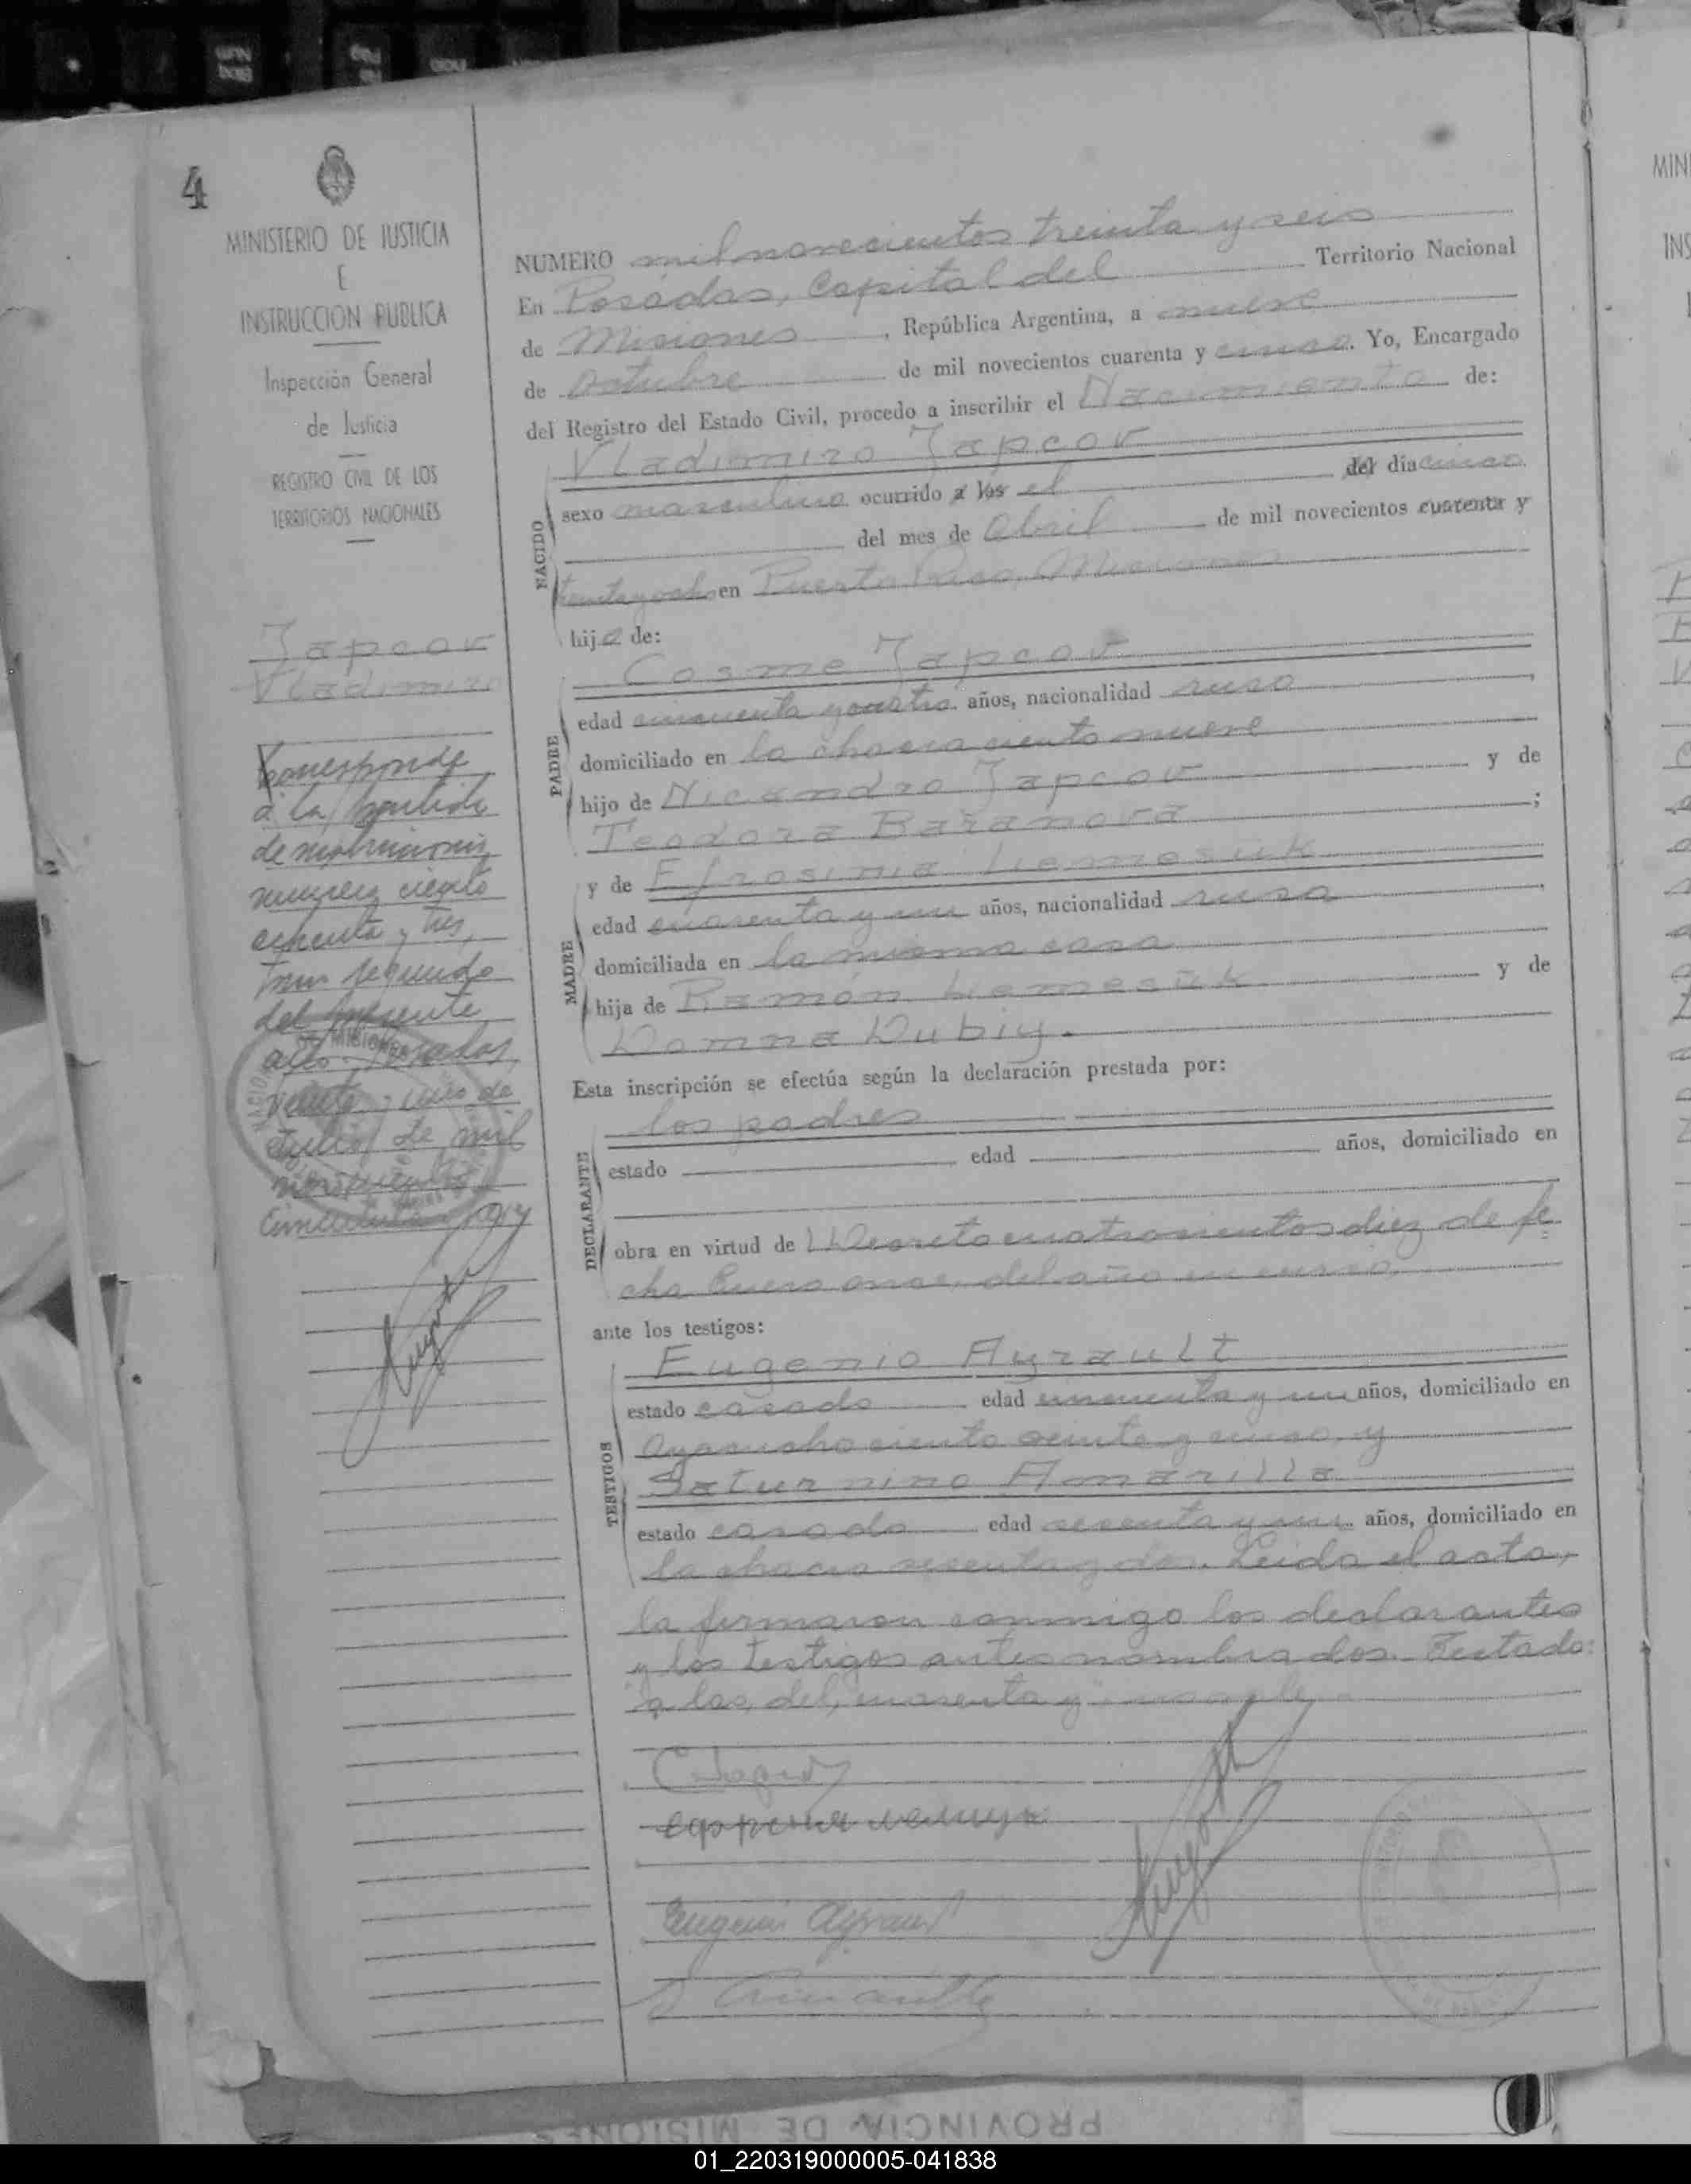 4
MINISTERIO DE JUSTICIA
E
INSTRUCCION PUBLICA
Inspección General
de Justicia
REGISTRO CIVIL DE LOS
TERRITORIOS NACIONALES
Japcov
Vladimiro
Corresponde
a la partida
de matrimonio
número ciento
ochenta y tres,
tomo segundo
del presente
año. Posadas,
veinte y uno de
Julio de mil
novecientos
cincuenta y
NUMERO mil novecientos treinta y seis
En Posadas, Capital del Territorio Nacional
de Misiones, República Argentina, a nueve
de Octubre de mil novecientos cuarenta y cinco. Yo, Encargado
del Registro del Estado Civil, procedo a inscribir el Nacimiento de:
Vladimiro Japcov
NACIDO
sexo masculino ocurrido a las el del día cinco
del mes de Abril de mil novecientos cuarenta y
treinta y ocho en Puerto Rico, Misiones
hijo de:
Cosme Japcov
PADRE
edad cincuenta y cuatro años, nacionalidad ruso
domiciliado en la chacra ciento nueve
hijo de Nicandro Japcov y de
Teodora Baranova;
MADRE
y de Efrosinia Liemesuk
edad cuarenta y un años, nacionalidad rusa
domiciliada en la misma casa
hija de Ramón Liemesuk y de
Domna Dubiy.
Esta inscripción se efectúa según la declaración prestada por:
los padres
DECLARANTE
estado edad años, domiciliado en
obra en virtud de Decreto cuatrocientos diez de fe
cha Enero once del año en curso,
ante los testigos:
TESTIGOS
Eugenio Ayrault
estado casado edad cincuenta y un años, domiciliado en
Ayacucho ciento veinte y cinco, y
Saturnino Amarilla
estado casado edad sesenta y un años, domiciliado en
la chacra sesenta y dos. Leida el acta,
la firmaron conmigo los declarantes
y los testigos antes nombrados. Testado:
"a las, del, cuarenta y" no vale
Eugenio Ayrault
S Amarilla
PROVINCIA DE MISIONES
MINI
INS
01_220319000005-041838